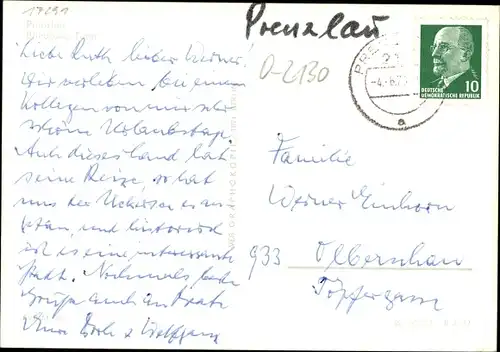 17291
Prenzlau
O-2130
PRE
-4.-8.7
a
10
DEUTSCHE
DEMOKRATISCHE REPUBLIK
Liebe Ruth, lieber Werner!
Wir verleben bei einem
Kollegen von mir sehr
schöne Urlaubstage.
Auch dieses Land hat
seine Reize, so hat
uns der Uckersee es an-
getan, und historisch
ist es eine interessante
Stadt. Nochmals beste
Grüße auch an Beate
Eure Dorle & Wolfgang
Familie
Werner Einhorn
933 Olbernhau
Töpfergasse